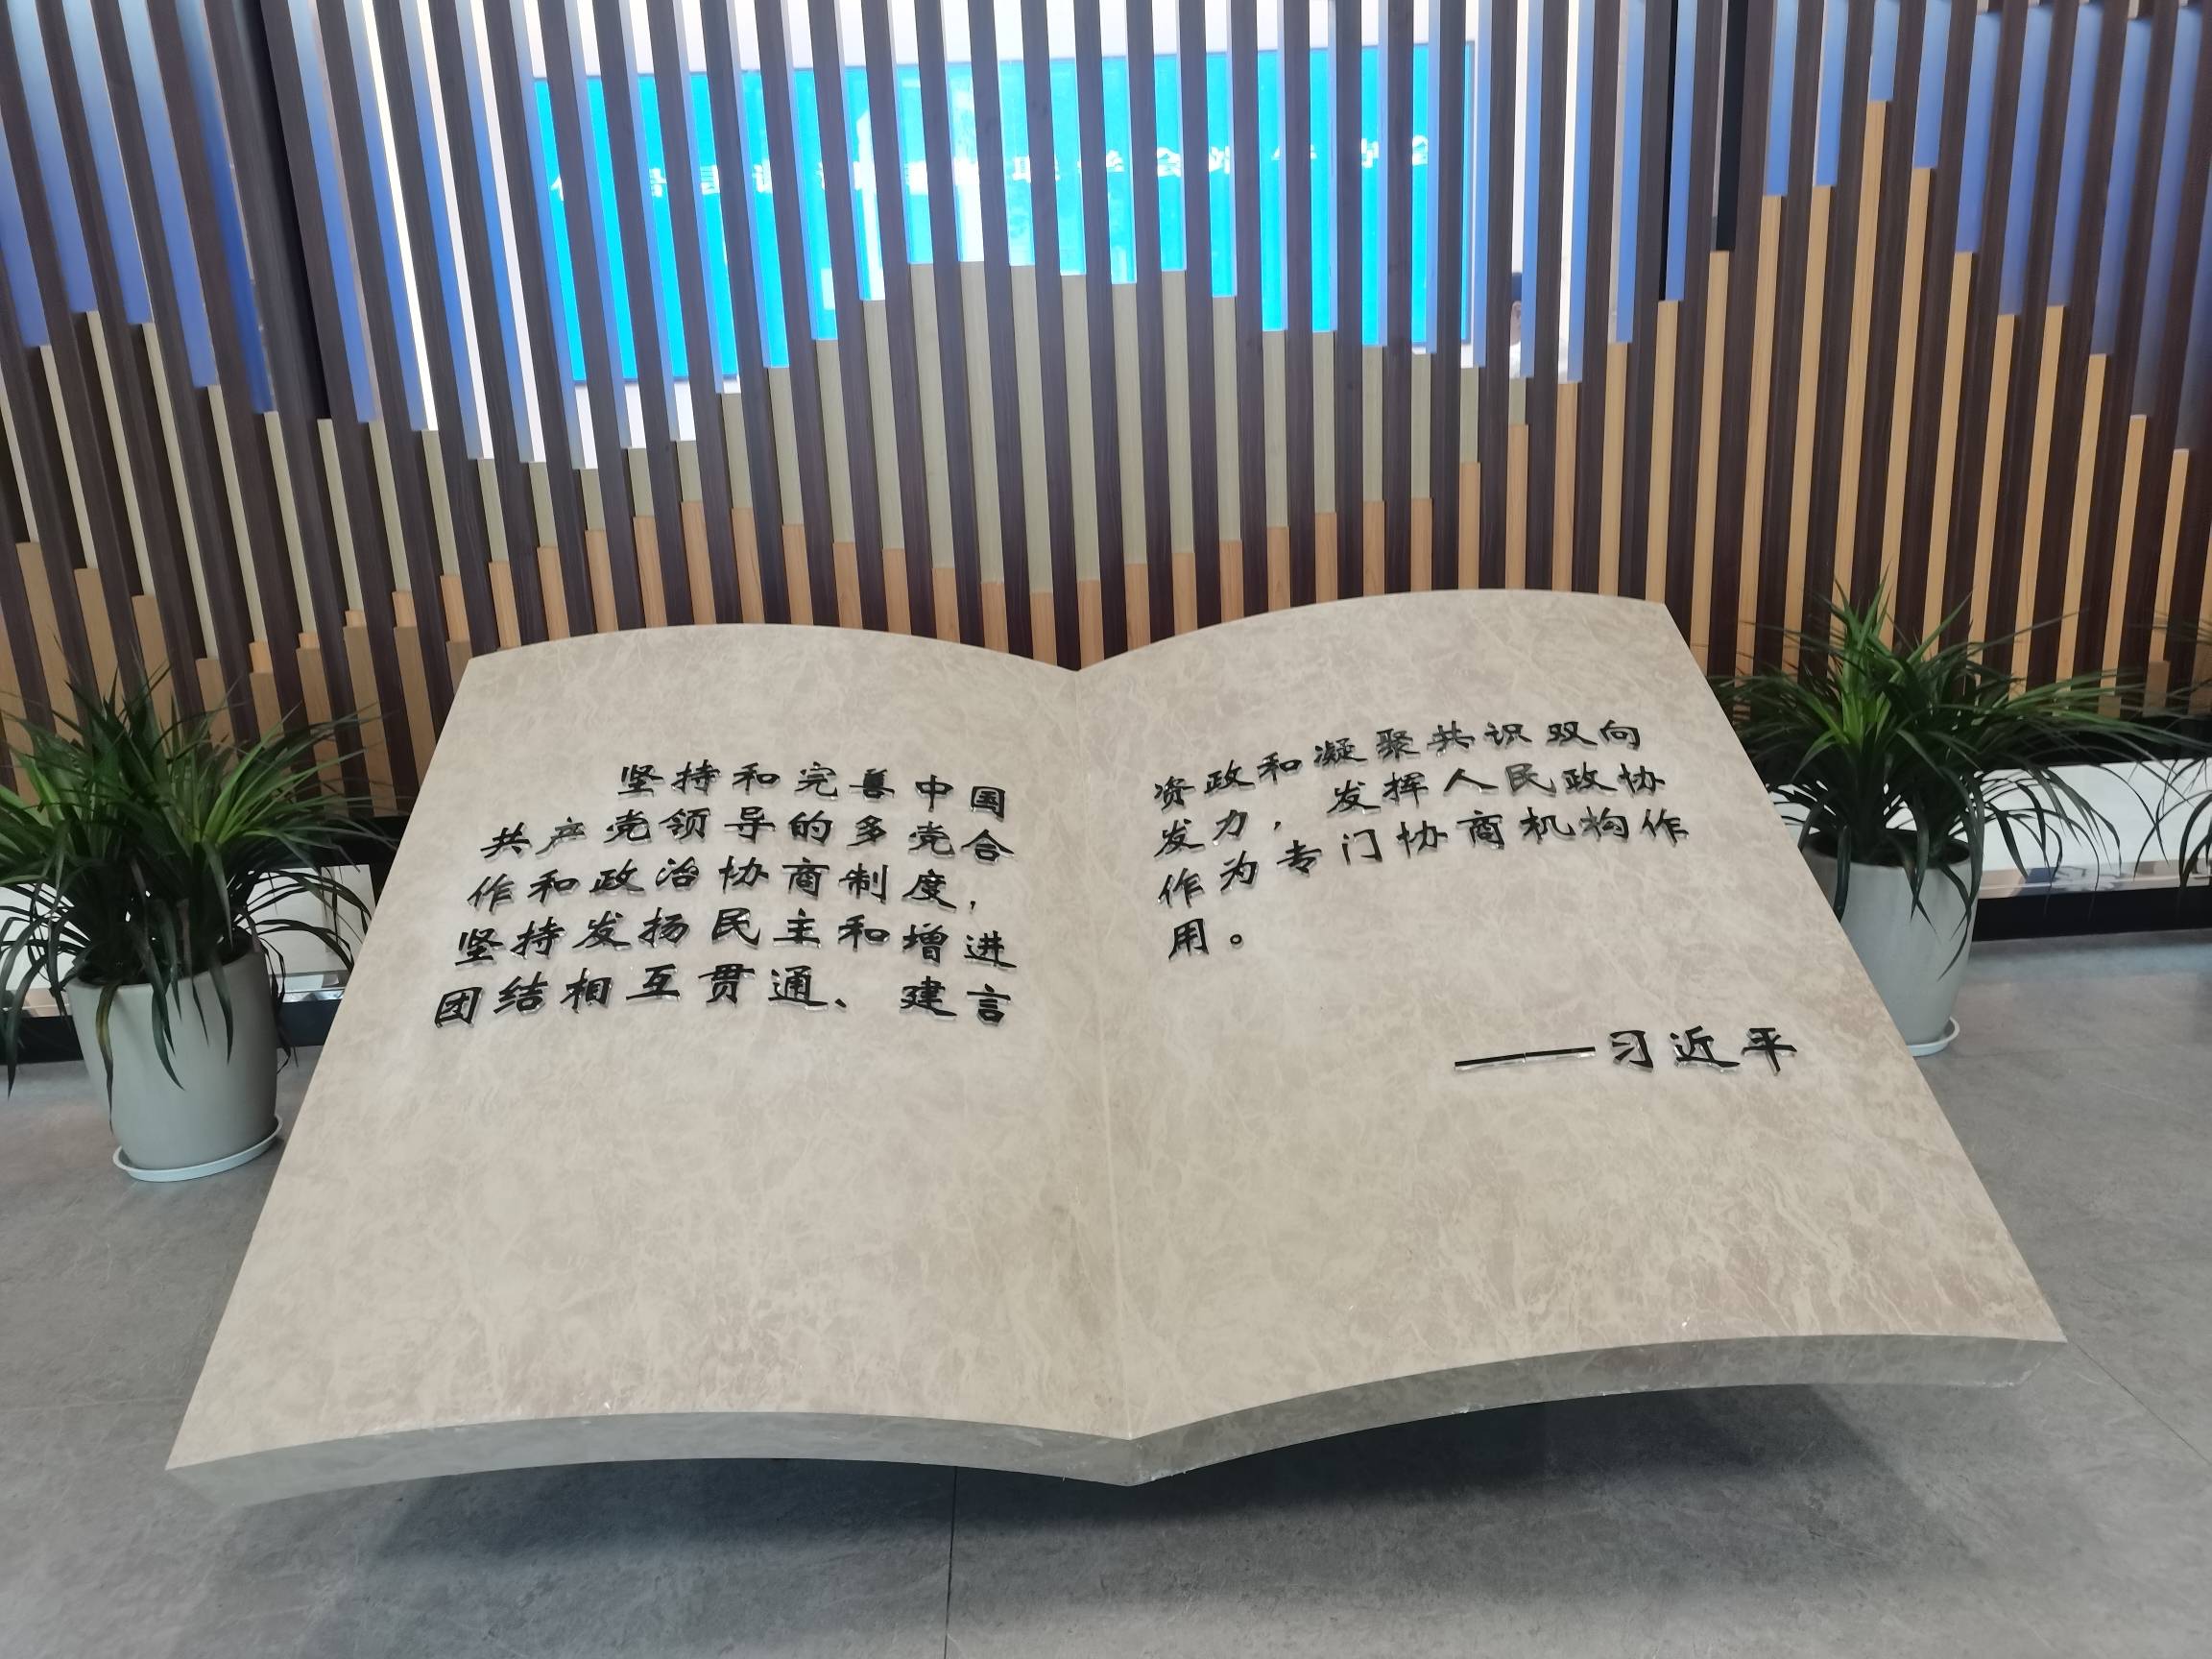 坚持和完善中国
共产党领导的多党合
作和政治协商制度，
坚持发扬民主和增进
团结相互贯通、建言
资政和凝聚共识双向
发力，发挥人民政协
作为专门协商机构作
用。
——习近平